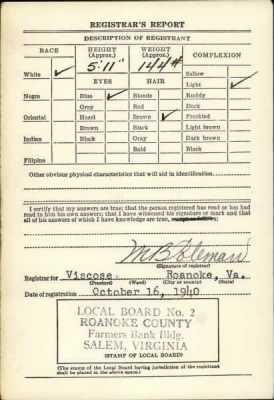 REGISTRAR'S REPORT
DESCRIPTION OF REGISTRANT
RACE HEIGHT (Approx.) WEIGHT (Approx.) COMPLEXION
5'11" 144#
White ✓ Sallow
EYES HAIR Light ✓
Negro Blue ✓ Blonde Ruddy
Gray Red Dark
Oriental Hazel Brown ✓ Freckled
Brown Black Light brown
Indian Black Gray Dark brown
Bald Black
Filipino
Other obvious physical characteristics that will aid in identification
I certify that my answers are true; that the person registered has read or has had
read to him his own answers; that I have witnessed his signature or mark and that
all of his answers of which I have knowledge are true,
M B Coleman
(Signature of registrar)
Registrar for Viscose Roanoke, Va.
(Precinct) (Ward) (City or county) (State)
Date of registration October 16, 1940
LOCAL BOARD No. 2
ROANOKE COUNTY
Farmers Bank Bldg.
SALEM, VIRGINIA
(STAMP OF LOCAL BOARD)
(The stamp of the Local Board having jurisdiction of the registrant
shall be placed in the above space.)